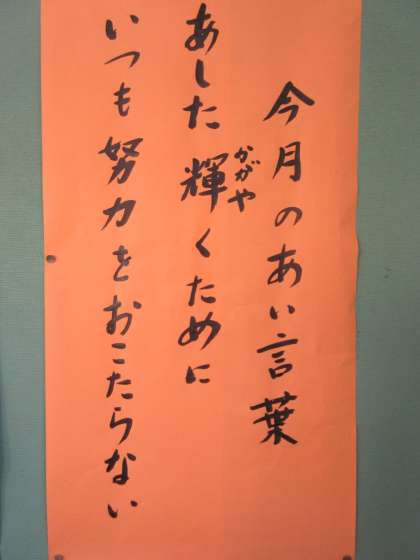 今月のあい言葉
あした輝くために
かがや
いつも努力をおこたらない